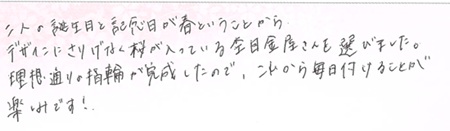 二人の誕生日と記念日が春ということから
デザインにさりげなく桜が入っている杢目金屋さんを選びました。
理想通りの指輪が完成したので、これから毎日付けることが
楽しみです!